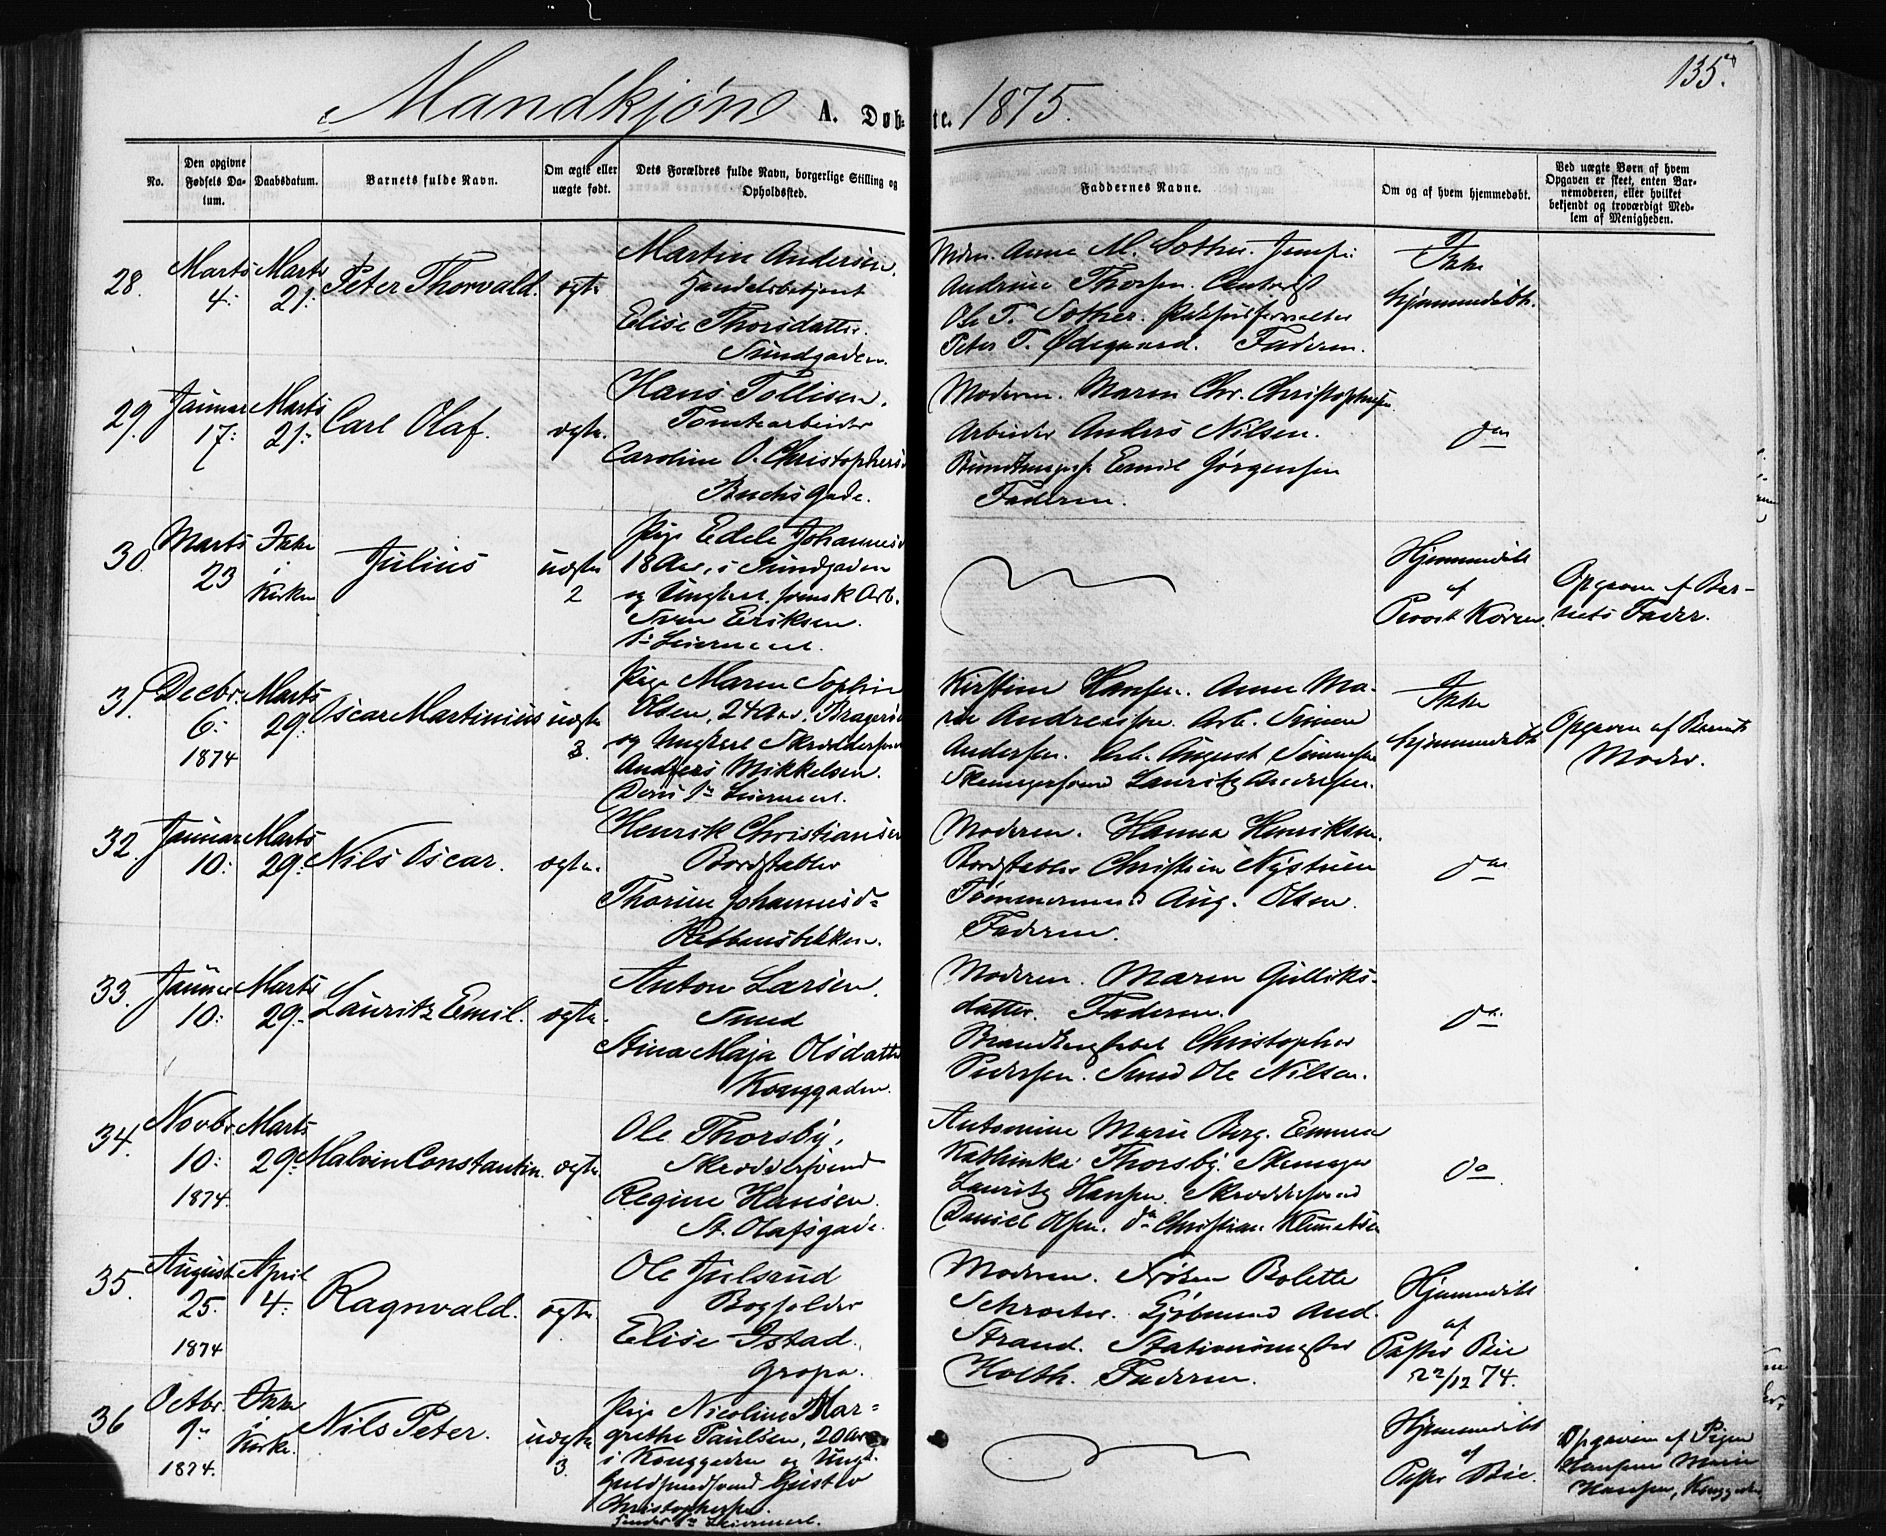 Mandkjøn A. Døb- te. 1875.
135.
No.
Den opgivne Fødsels Da- tum.
Daabsdatum.
Barnets fulde Navn.
Om ægte eller uægte født.
Dets Forældres fulde Navn, borgerlige Stilling og Opholdssted.
Faddernes Navne.
Om og af hvem hjemmedøbt.
Ved uægte Børn af hvem Opgaven er skeet, enten Bar- nemoderen, eller hvilket bekjendt og troværdigt Med- lem af Menigheden.
28. Marts 4. Marts 21. Peter Thorvald. ægte
Martin Andersen,
Handelsbetjent
Elise Thorsdatter.
Sundgaden.
Anna M. Sother. Jomfr:
Andrine Thorsen.
Ole T. Sother. Pakhusforvalter
Peter T. Ødegaard. Faderen.
Ikke
hjemmedøbt.
29. Januar 17. Marts 21. Carl Olaf. ægte.
Hans Tollisen,
Tomtearbeider
Caroline O. Christophersd
Buchs Gade.
Moderen. Maren Chr. Christophersen
Arbeider Anders Nilsen.
Emil Jørgensen
Faderen.
do
30. Marts 23 Ikke i Kirken Julius uægte 2
Pige Edele Johannesd
18 Aar, i Sundgaden
og Ungkarl svensk Arb.
Sven Eriksen.
1ste Leiermaal.
Hjemmedøbt
af
Provst Koren.
Opgaven af Bar-
nets Fader.
31. Decbr. 6. 1874 Marts 29. Oscar Martinius uægte 3
Pige Maren Sophie
Olsen, 24 Aar, Bragernes
og Ungkarl Skræddersvend
Anders Mikkelsen.
Deres 1ste Leiermaal.
Kirstine Hansen. Anne Ma-
rie Andreassen. Arb. Simen
Andersen. Arb. August Simensen
Skomagersvend Lauritz Andersen.
Ikke
hjemmedøbt
Opgaven af Barnets
Moder.
32. Januar 10. Marts 29. Nils Oscar. ægte.
Henrik Christiansen
Bordstabler
Thorine Johannesd=
Moderen. Hanna Henriksen.
Bordstabler Christian Nystuen
Tømmermand Aug. Olsen.
Faderen.
do
33. Januar 10. Marts 29. Lauritz Emil. ægte.
Anton Larsen.
Smed
Stina Maja Olsdatter
Konggaden.
Moderen. Maren Gulliks-
datter. Faderen.
Christopher
Pedersen. Smed Ole Nilsen.
do
34. Novbr. 10. 1874. Marts 29. Malvin Constantin. ægte
Ole Thorsby,
Skræddersvend
Regine Hansen.
St. Olafsgade.
Antonine Marie Berg. Emma
Kathinka Thorsby. Skomager
Lauritz Hansen. Skræddersvend
Daniel Olsen. do Christian Klemetsen
do
35. August 25. 1874 April 4. Ragnvald. ægte
Ole Julsrud
Bogholder
Elise Istad.
Gropa.
Moderen. Frøken Bolette
Schroeter. Kjøbmand And.
Strand. Stationsmester
Holth. Faderen.
Hjemmedøbt
af
Pastor Bie
22/12 74.
36 Octbr. 9. 1874. Ikke i Kirke. Nils Peter. uægte 3.
Pige Nicoline Mar=
grethe Paulsen, 20 Aar
i Konggaden og Ungk.
Guldsmedsvend Gustav
Christophersen.
1ste Leiermaal.
Hjemmedøbt
af
Pastor Bie.
Opgaven af Pigen
Marie
Hansen, Konggaden